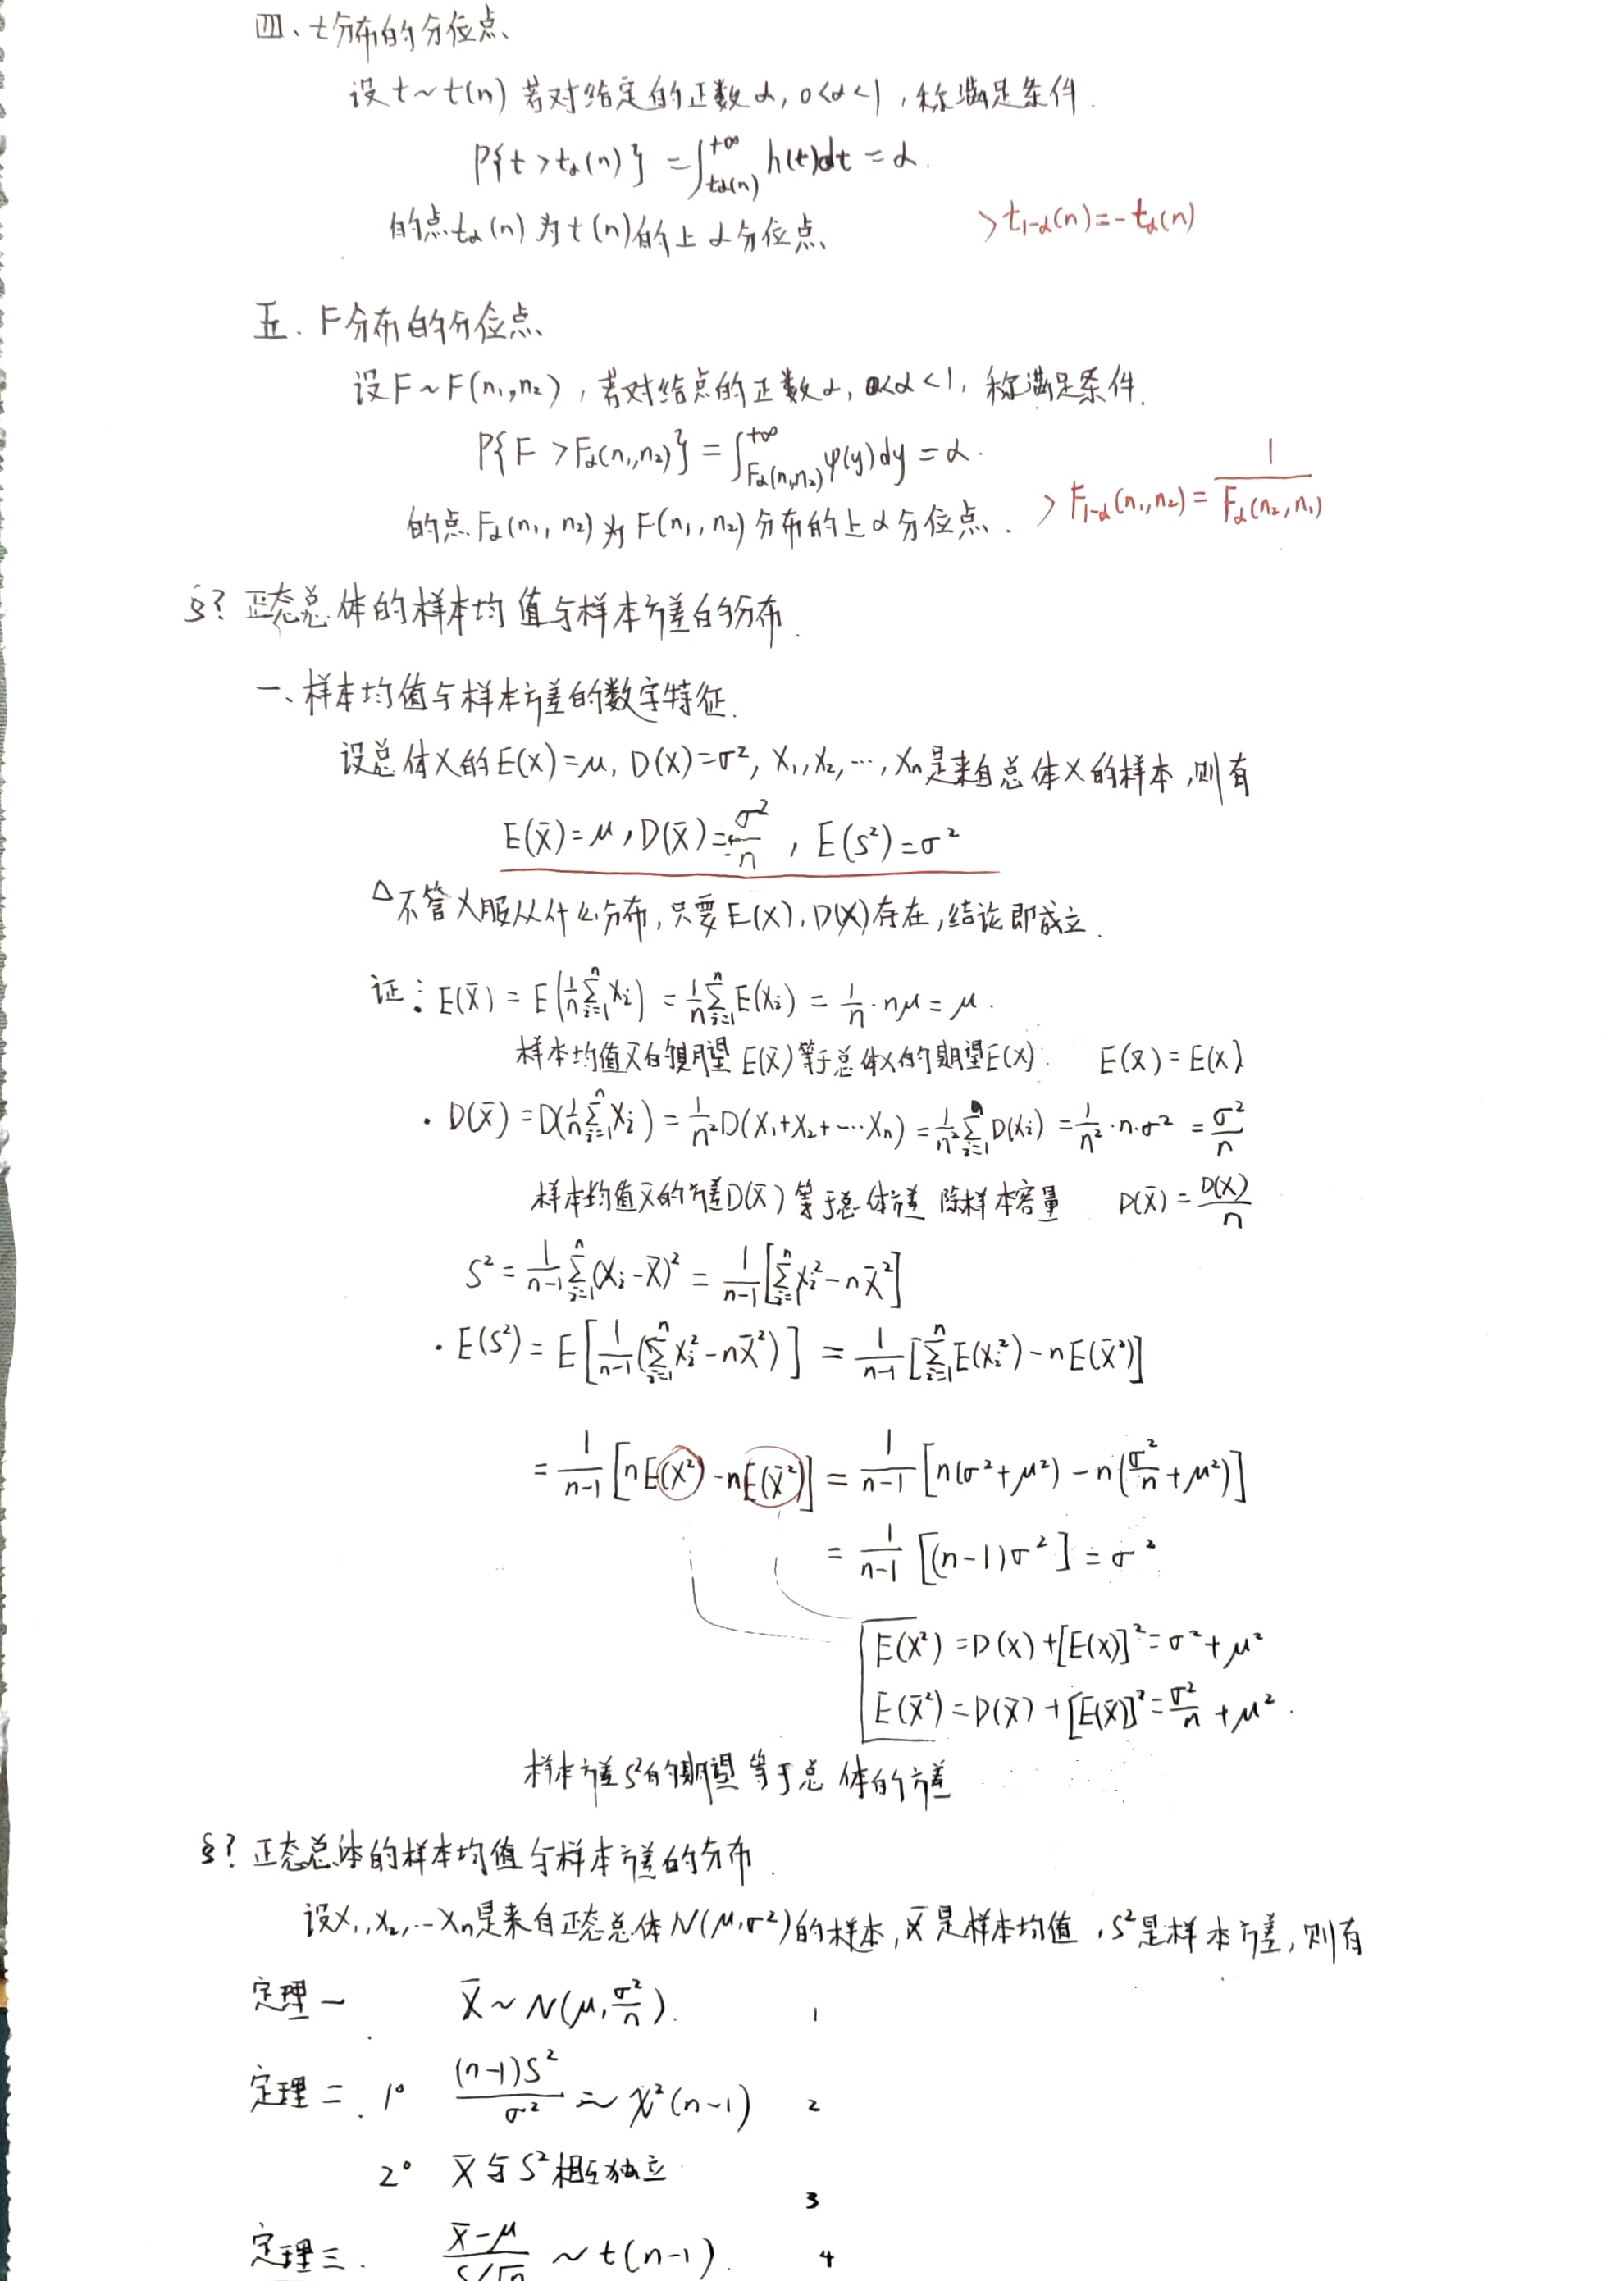 四、t分布的分位点
设t~t(n) 若对给定的正数α, 0<α<1, 称满足条件.
P{t>tα(n)} = ∫_{tα(n)}^{+∞} h(t)dt = α.
的点tα(n)为t(n)的上α分位点 > t1-α(n)=-tα(n)
五. F分布的分位点
设F~F(n1,n2), 若对给点的正数α, 0<α<1, 称满足条件.
P{F>Fα(n1,n2)} = ∫_{Fα(n1,n2)}^{+∞} φ(y)dy = α.
的点Fα(n1,n2)为F(n1,n2)分布的上α分位点. > F1-α(n1,n2) = 1/Fα(n2,n1)
§? 正态总体的样本均值与样本方差的分布.
一、样本均值与样本方差的数字特征.
设总体X的E(X)=μ, D(X)=σ², X1,X2,…,Xn是来自总体X的样本,则有
E(X̄)=μ, D(X̄)=σ²/n, E(S²)=σ²
△不管X服从什么分布,只要E(X),D(X)存在,结论即成立.
证: E(X̄) = E(1/n ∑_{i=1}^{n} Xi) = 1/n ∑_{i=1}^{n} E(Xi) = 1/n·nμ = μ.
样本均值X̄的期望E(X̄)等于总体X的期望E(X). E(X̄)=E(X)
· D(X̄) = D(1/n ∑_{i=1}^{n} Xi) = 1/n² D(X1+X2+…Xn) = 1/n² ∑_{i=1}^{n} D(Xi) = 1/n²·n·σ² = σ²/n
样本均值X̄的方差D(X̄)等于总体方差 除样本容量 D(X̄)=D(X)/n
S² = 1/(n-1) ∑_{i=1}^{n} (Xi-X̄)² = 1/(n-1) [∑_{i=1}^{n} Xi²-nX̄²]
· E(S²) = E[1/(n-1) (∑_{i=1}^{n} Xi²-nX̄²)] = 1/(n-1) [∑_{i=1}^{n} E(Xi²)-nE(X̄²)]
= 1/(n-1) [nE(X²)-nE(X̄²)] = 1/(n-1) [n(σ²+μ²)-n(σ²/n+μ²)]
= 1/(n-1) [(n-1)σ²] = σ²
E(X²)=D(X)+[E(X)]²=σ²+μ²
E(X̄²)=D(X̄)+[E(X̄)]²=σ²/n+μ².
样本方差S²的期望等于总体的方差
§? 正态总体的样本均值与样本方差的分布.
设X1,X2,…Xn是来自正态总体N(μ,σ²)的样本,X̄是样本均值,S²是样本方差,则有
定理一 X̄~N(μ,σ²/n). 1
定理二. 1° (n-1)S²/σ² ~ χ²(n-1) 2
2° X̄与S²相互独立
3
定理三. (X̄-μ)/(S/√n) ~ t(n-1). 4